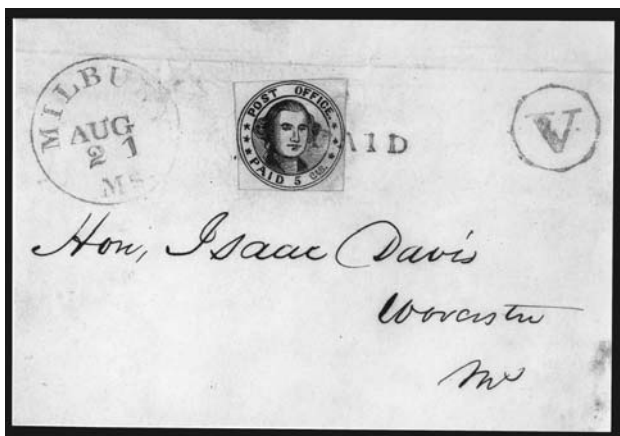 MILBU
AUG
21
MS
POST OFFICE.
PAID 5 Cts.
AID
V
Hon, Isaac Davis
Worcester
Ms